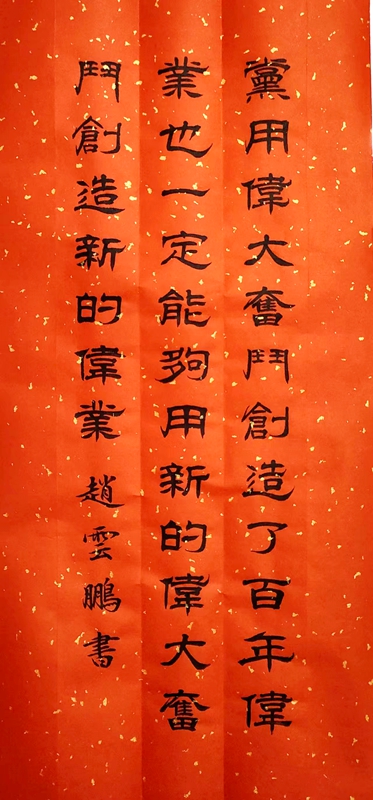 黨用偉大奮鬥創造了百年偉
業也一定能夠用新的偉大奮
鬥創造新的偉業 趙雲鵬書